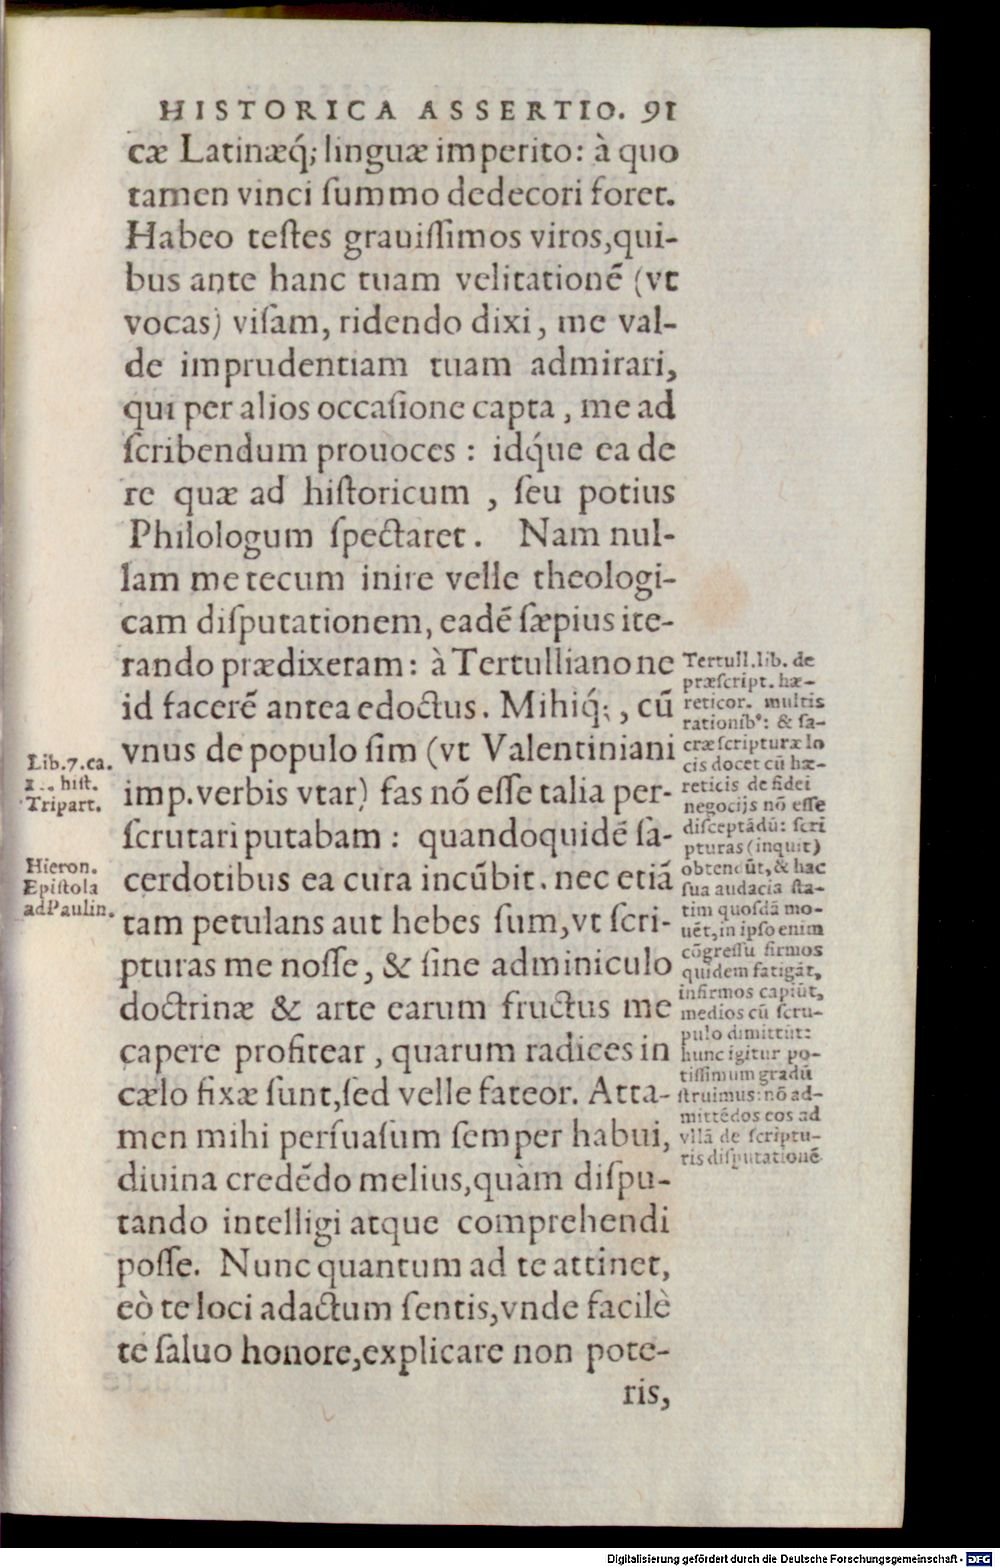 HISTORICA ASSERTIO. 91
cæ Latinæq́; linguæ imperito: à quo
tamen vinci ſummo dedecori foret.
Habeo teſtes grauiſſimos viros,qui-
bus ante hanc tuam velitationē (vt
vocas) viſam, ridendo dixi, me val-
de imprudentiam tuam admirari,
qui per alios occaſione capta, me ad
ſcribendum prouoces: idq́ue ea de
re quæ ad hiſtoricum, ſeu potius
Philologum ſpectaret. Nam nul-
lam me tecum inire velle theologi-
cam diſputationem, eadē ſæpius ite-
rando prædixeram: à Tertulliano ne
id facerē antea edoctus. Mihiq́;, cū
vnus de populo ſim (vt Valentiniani
imp.verbis vtar) fas nō eſſe talia per-
ſcrutari putabam: quandoquidē ſa-
cerdotibus ea cura incūbit. nec etiā
tam petulans aut hebes ſum,vt ſcri-
pturas me noſſe, & ſine adminiculo
doctrinæ & arte earum fructus me
capere profitear, quarum radices in
cælo fixæ ſunt,ſed velle fateor. Atta-
men mihi perſuaſum ſemper habui,
diuina credēdo melius,quàm diſpu-
tando intelligi atque comprehendi
poſſe. Nunc quantum ad te attinet,
eò te loci adactum ſentis,vnde facilè
te ſaluo honore,explicare non pote-
ris,
Lib.7.ca.
hiſt.
Tripart.
Hieron.
Epiſtola
ad Paulin.
Tertull.lib. de
præſcript. hæ-
reticor. multis
rationibꝰ: & ſa-
cræ ſcripturæ lo
cis docet cū hæ-
reticis de fidei
negocijs nō eſſe
diſceptādū: ſcri
pturas (inquit)
obtendūt, & hac
ſua audacia ſta-
tim quoſdā mo-
uēt,in ipſo enim
cōgreſſu firmos
quidem fatigāt,
infirmos capiūt,
medios cū ſcru-
pulo dimittūt:
hunc igitur po-
tiſſimum gradū
ſtruimus: nō ad-
mittēdos eos ad
vllā de ſcriptu-
ris diſputationē
Digitalisierung gefördert durch die Deutsche Forschungsgemeinschaft - DFG